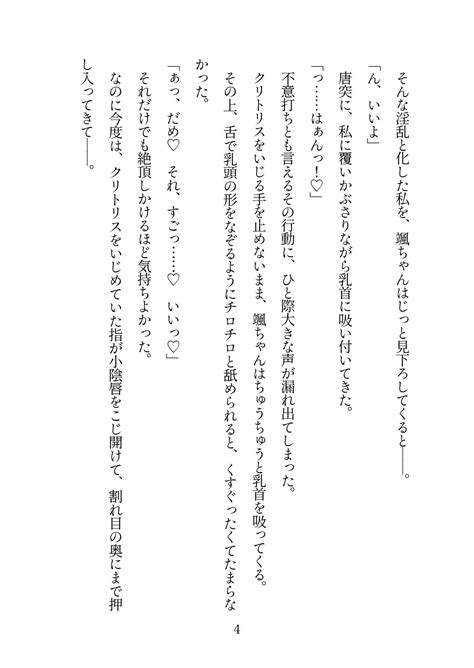 そんな淫乱と化した私を、颯ちゃんはじっと見下ろしてくると――。
「ん、いいよ」
唐突に、私に覆いかぶさりながら乳首に吸い付いてきた。
「っ……はぁんっ！♡」
不意打ちとも言えるその行動に、ひと際大きな声が漏れ出てしまった。
クリトリスをいじる手を止めないまま、颯ちゃんはちゅうちゅうと乳首を吸ってくる。
その上、舌で乳頭の形をなぞるようにチロチロと舐められると、くすぐったくてたまらな
かった。
「ぁっ、だめ♡　それ、すごっ……♡　いいっ♡」
それだけでも絶頂しかけるほど気持ちよかった。
なのに今度は、クリトリスをいじめていた指が小陰唇をこじ開けて、割れ目の奥にまで押
し入ってきて――。
4